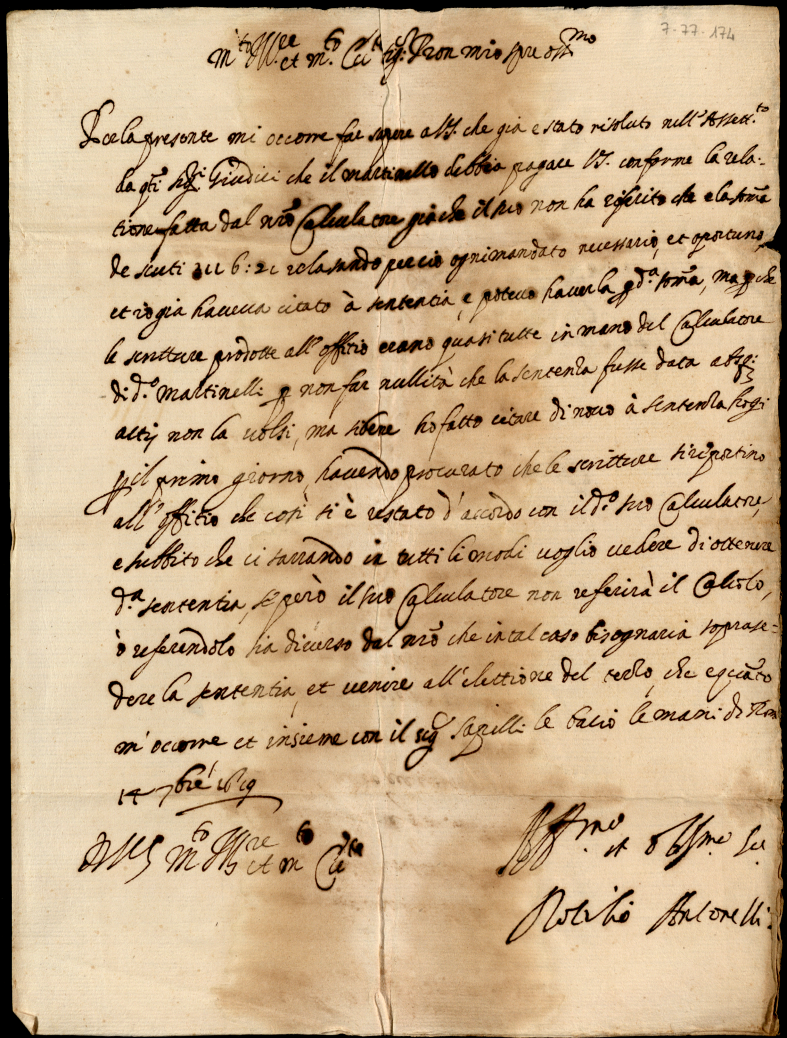 7-77-174
m.to Ill.re et m.to Ecc.te sig.r Pron mio
Per la presente mi occorre far sapere a V.S. che già è stato risoluto nell'Assett.to
da q.ti sig.ri Giudici che il martinello debbia pagare V.S. conforme la rela=
tione fatta dal nro Calculatore già che il suo non ha riferito che è la soma
de scuti 311 6: 21 relasando percio ogni mandato necessario, et oportuno,
et io già haveva citato à sententia, e potevo haver la d.a soma, ma p che
le scritture prodotte all'offitio erano quasi tutte in mano del Calculatore
di d.o Martinelli p non far nullità che la sentenza fusse data absq;
actis non la volsi, ma si bene ho fatto citare di novo à sentenza hoggi
p il primo giorno, havendo procurato che le scritture si riportino
all'offitio che così si è restato d'accordo con il d.o suo Calculatore,
e subbito che ci sarrando in tutti li modi voglio vedere di ottenere
d.a sententia, se però il suo Calculatore non referirà il Calcolo,
ò referendolo sia diverso dal nro che in tal caso bisognaria soprase=
dere la sententia, et venire all'elettione del terzo, che è quāto
m'occorre et insieme con il sig.r le bacio le mani di Roma
14 7bre 1619
D V.S. M.to Ill.re et m.to Ecc.te
Aff.mo et obb.mo Se.
Rotilio Antonelli